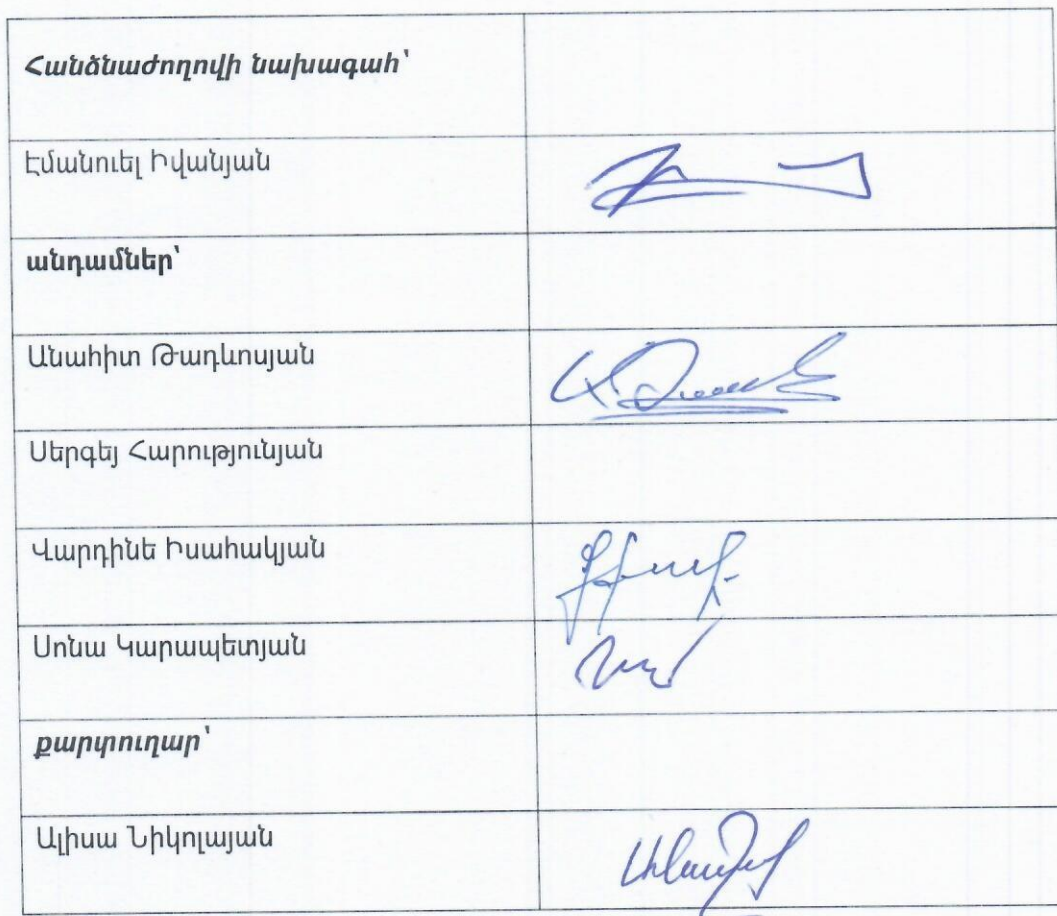 Հանձնաժողովի նախագահ՝
Էմանուել Իվանյան
անդամներ՝
Անահիտ Թադևոսյան
Սերգեյ Հարությունյան
Վարդինե Իսահակյան
Սոնա Կարապետյան
քարտուղար՝
Ալիսա Նիկոլայան